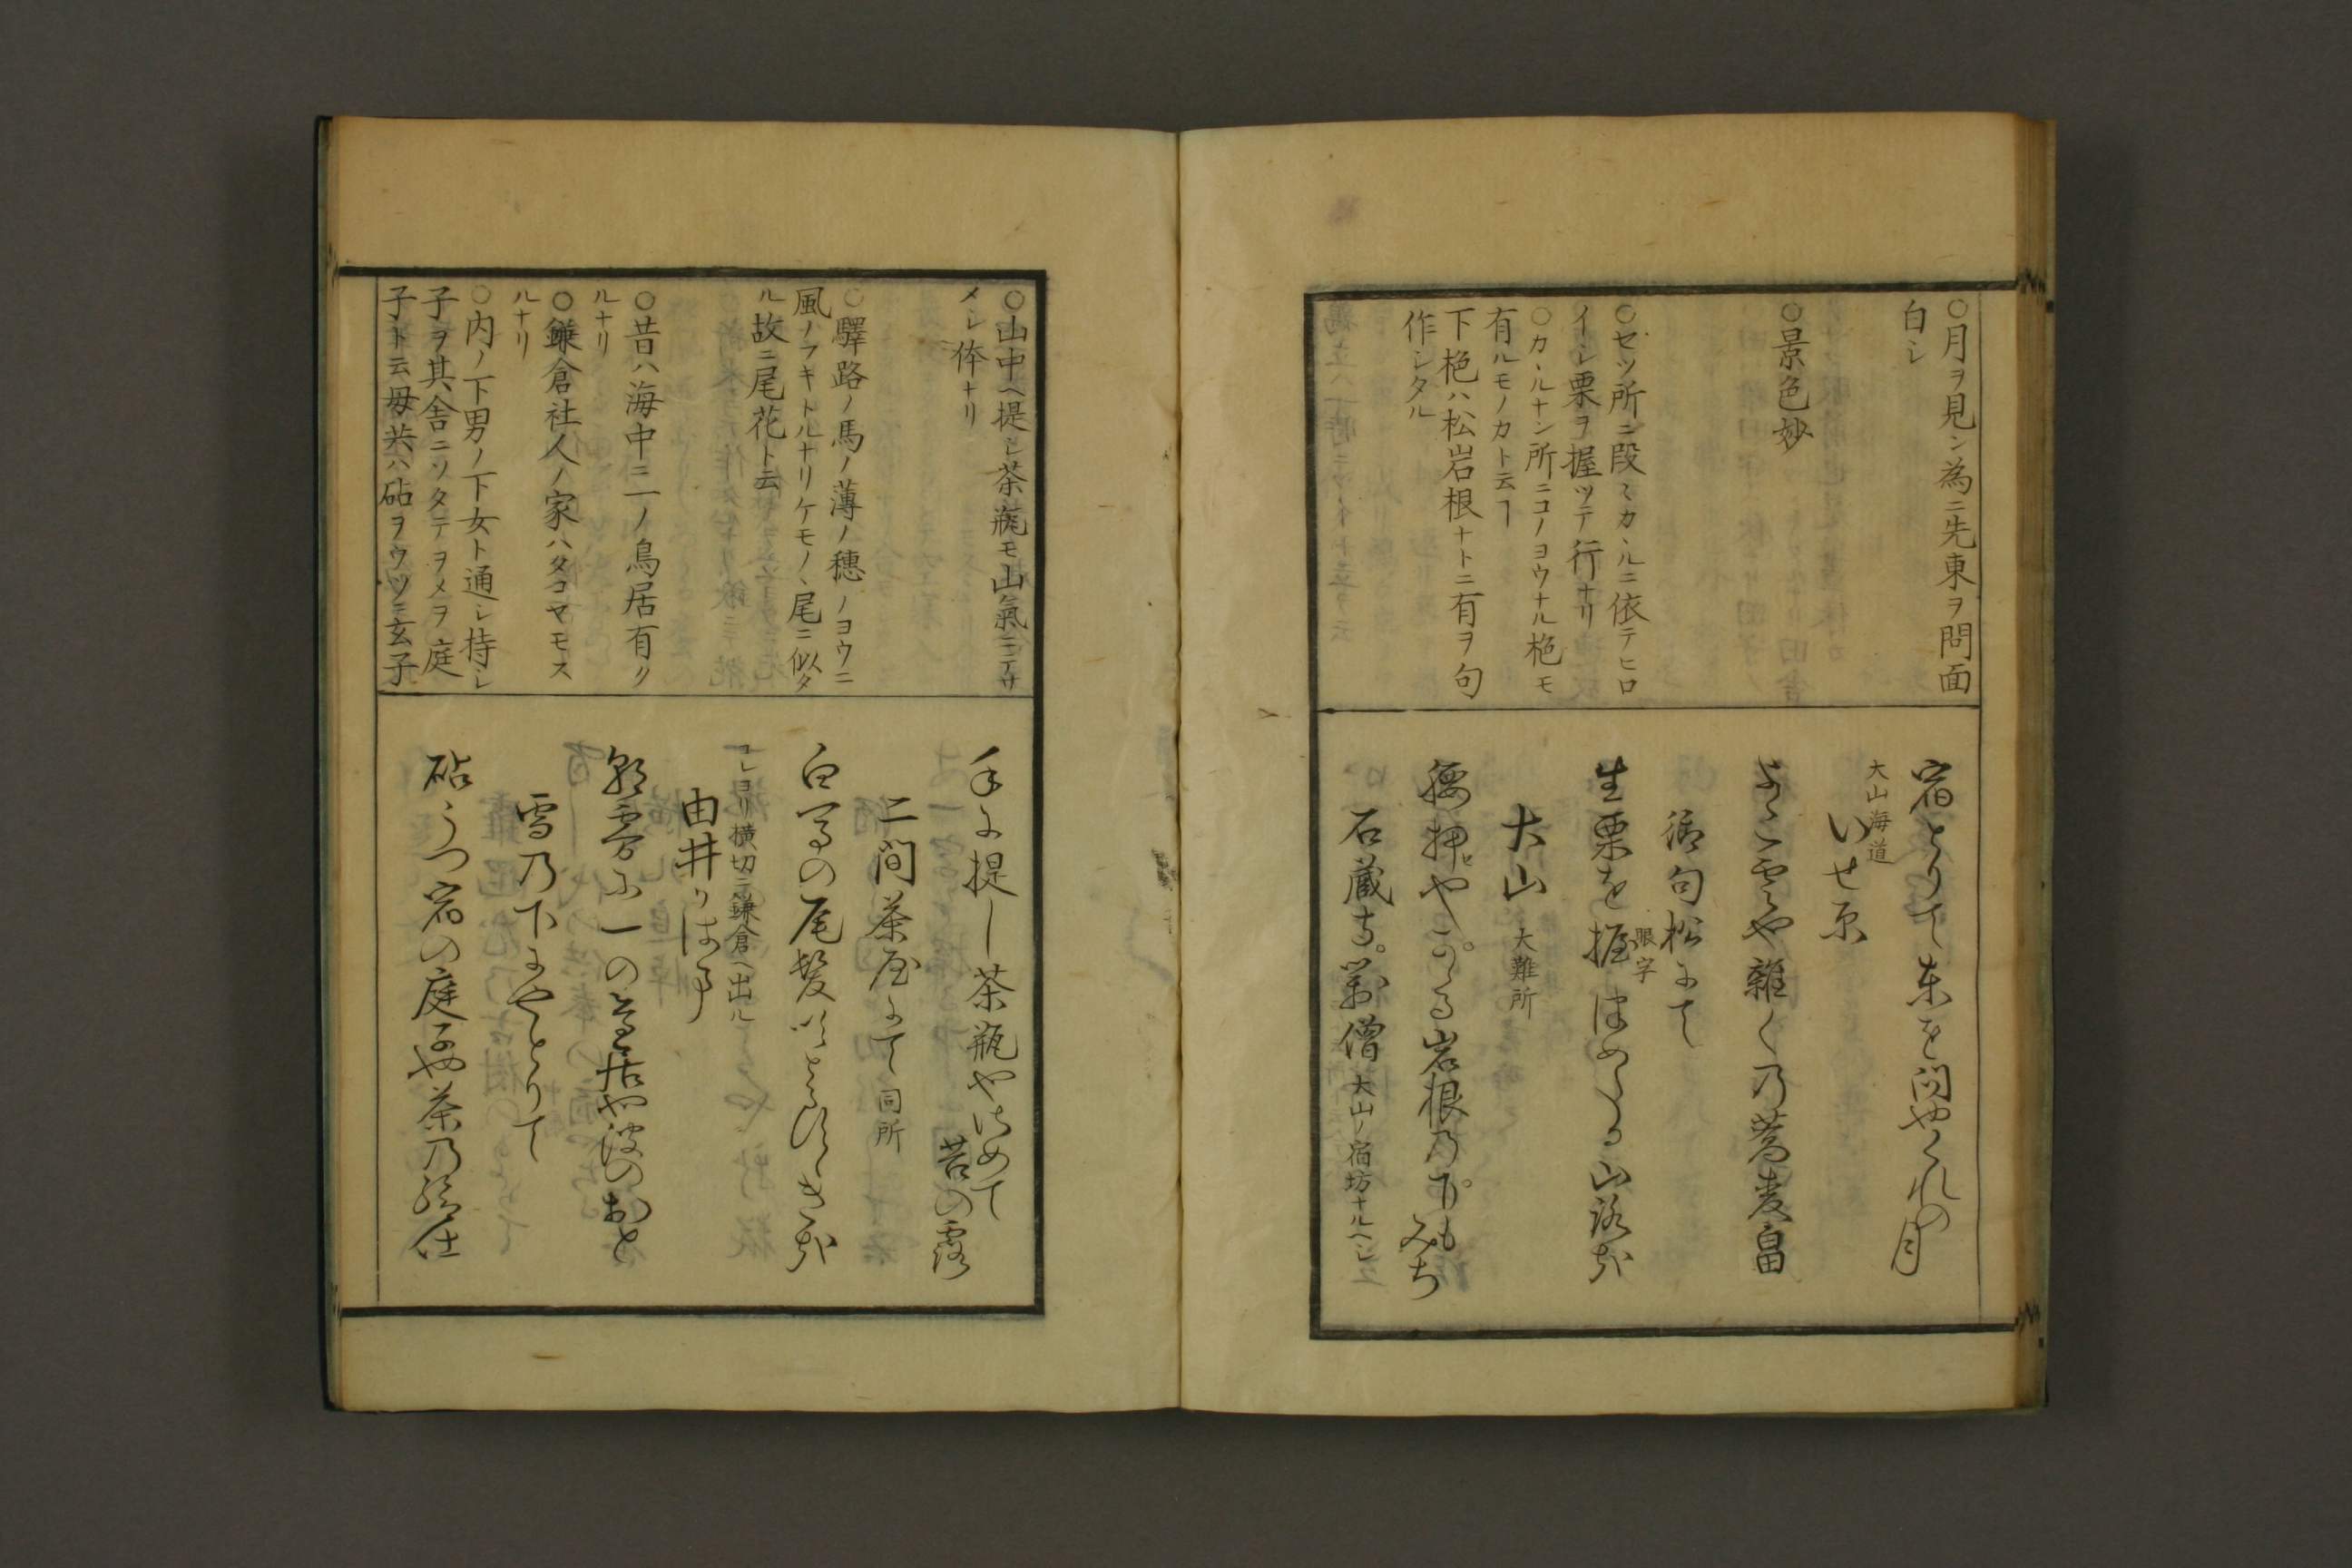 ○月ヲ見ン為ニ先東ヲ問面
白シ
○景色妙
○セツ所ニ段〻カヽルニ依テヒロ
イシ栗ヲ握ツテ行ナリ
○カヽルナン所ニコノヨウナル栬モ
有ルモノカト云ヿ
下栬ハ松岩根ナトニ有ヲ句
作シタル
宿とりて東を問やくれの月
大山海道
いせ原
よこ雲や離〳〵の蕎麦畠
御句松にて
眼字
生栗を握つめたる山路哉
大山 大難所
腰押やかゝる岩根の下もみち
石蔵寺 大山ノ宿坊ナルヘシ
○山中ヘ提シ茶瓶モ山氣ニテサ
メシ体ナリ
○驛路ノ馬ノ薄ノ穂ノヨウニ
風ノフキトルナリケモノヽ尾ニ似タ
ル故ニ尾花ト云
○昔ハ海中ニ一ノ鳥居有ク
ルナリ
○鎌倉社人ノ家ハタコヤモス
ルナリ
○内ノ下男ノ下女ト通シ持シ
子ヲ其舎ニソタテヲメヲ庭
子ト云母共ハ砧ヲウツ云玄子
手に提し茶瓶やさめて苔の露
二間茶屋にて 同所
白馬の尾髪
コレヨリ横切ニ鎌倉ヘ出ル
由井かはま
朝霧に一の鳥居や波のおと
雪の下にやとりて
砧うつ宿の庭子や茶の給仕